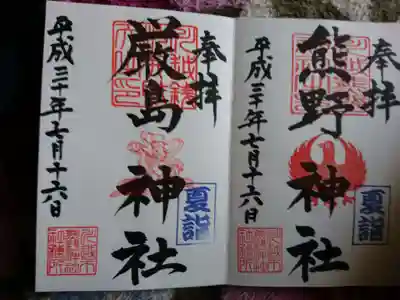 奉拝
熊野神社
平成三十年七月十六日
夏詣
奉拝
厳島神社
平成三十年七月十六日
夏詣